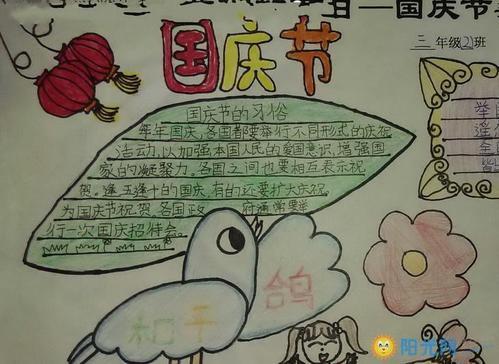 日—国庆节
国庆节
三年级(2)班
国庆节的习俗
年年国庆,各国都要举行不同形式的庆祝
活动,以加强本国人民的爱国意识,增强国
家的凝聚力。各国之间也要相互表示祝
贺。逢五逢十的国庆,有的还要扩大庆祝。
为国庆节祝贺,各国政府通常要举
行一次国庆招待会。
和平鸽
举
逢
全
阳光